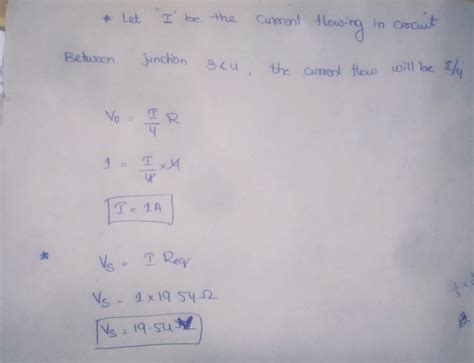 * Let "I" be the current flowing in circuit
Between junction 3 & 4, the current flow will be I/4
V₀ = I/4 R
1 = I/4 × 4
I = 1A
* Vs = I Req
Vs = 1 × 19.54 Ω
Vs = 19.54